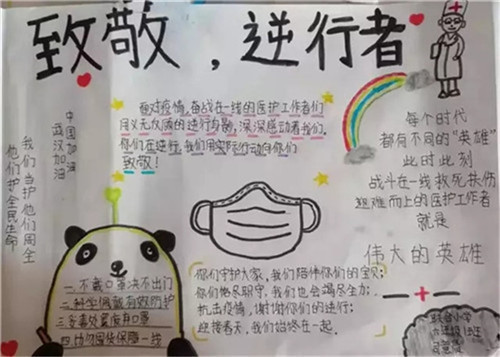 致敬，逆行者
面对疫情，奋战在一线的医护工作者们
用义无反顾的逆行与勇，深深感动着我们，
你们在逆行，我们用实际行动向你们
致敬！
每个时代
都有不同的“英雄
此时此刻
战斗在一线救死扶伤
迎难而上的医护工作者
就是
伟大的英雄
中国加油
武汉加油
我们当护他们周全
他们护全民生命
一.不戴口罩决不出门
二.科学佩戴有效防护
三.妥善处置废弃口罩
四.自力更生保障一线
你们守护大家，我们陪伴你们的宝贝；
你们恪尽职守，我们也会竭尽全力；
抗击疫情，谢谢你们的逆行；
迎接春天，我们始终在一起。
小学